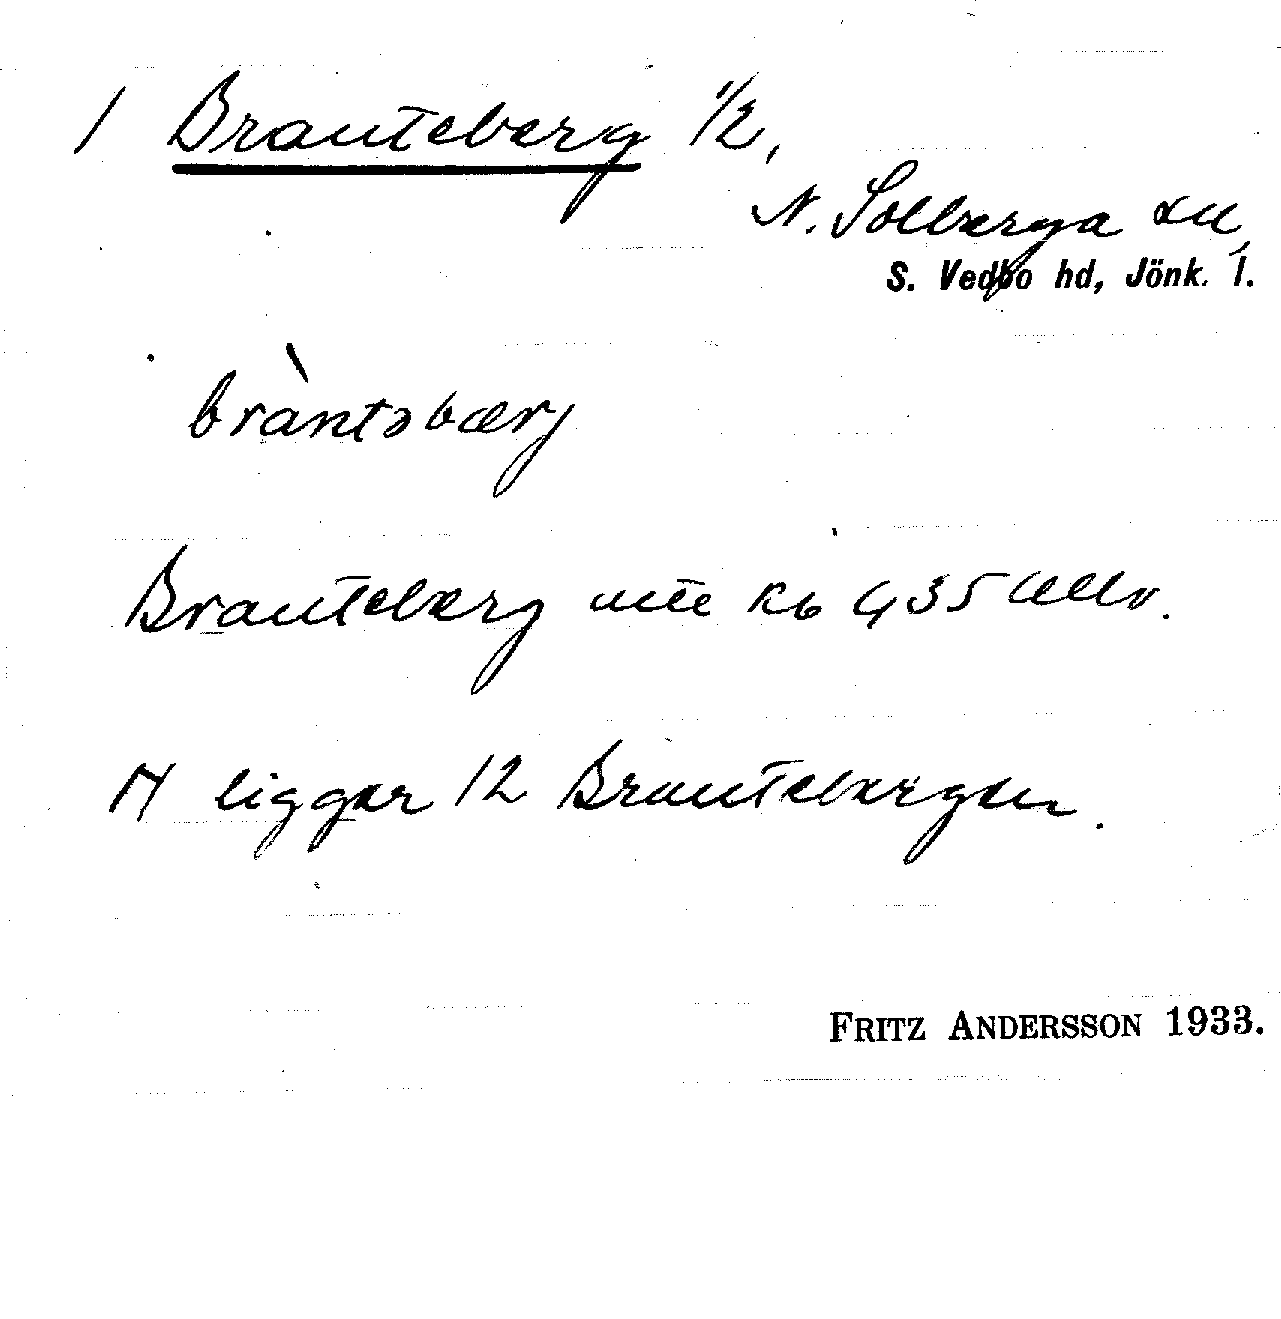 1 Branteberg 1/2,
N. Solberga sn,
S. Vedbo hd, Jönk. l.
bràntəbærj
Branteberg mtl kb 435
H ligger 12 Brantebergen.
FRITZ ANDERSSON 1933.